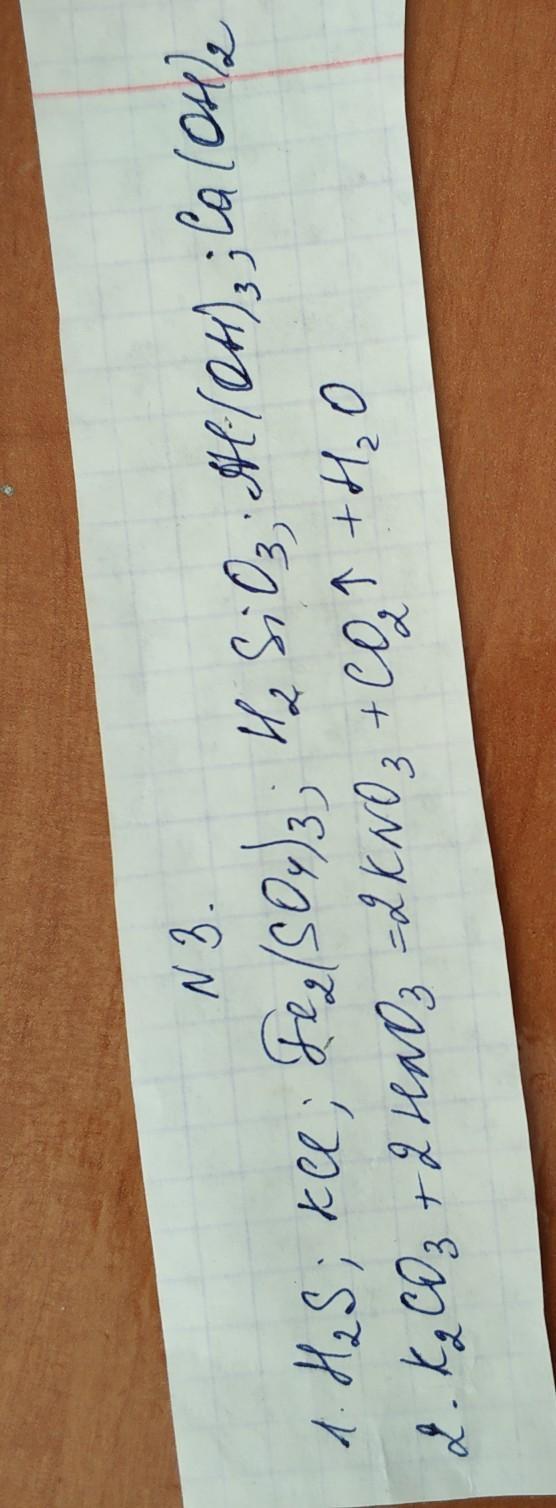 N 3.
1. H₂S; KCl; Fe₂(SO₄)₃; H₂SiO₃; Al(OH)₃; Ca(OH)₂
2. K₂CO₃ + 2HNO₃ = 2KNO₃ + CO₂↑ + H₂O